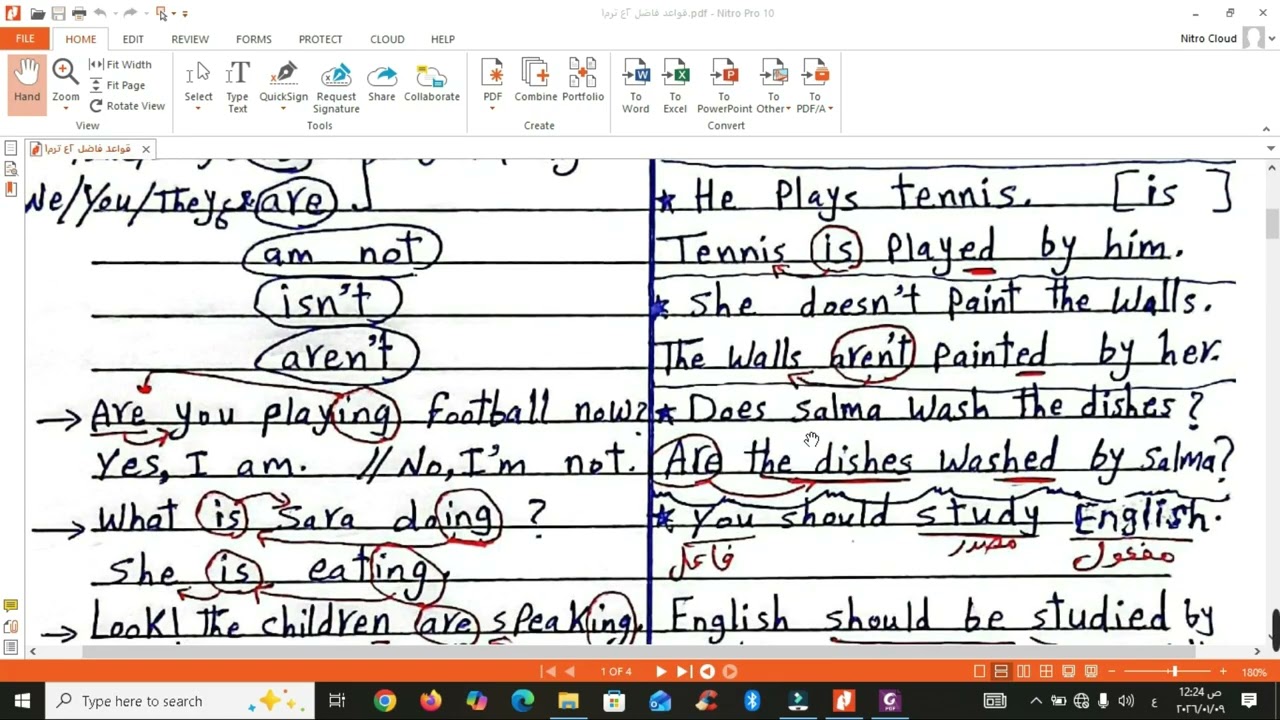 قواعد فاضل ٤ع ترم١.pdf - Nitro Pro 10
FILE HOME EDIT REVIEW FORMS PROTECT CLOUD HELP
Nitro Cloud
Hand
Zoom
Fit Width
Fit Page
Rotate View
View
Select
Type Text
QuickSign
Request Signature
Share
Collaborate
Tools
PDF
Combine
Portfolio
Create
To Word
To Excel
To PowerPoint
To Other
To PDF/A
Convert
We/You/They are
am not
isn't
aren't
→ Are you playing football now?
Yes, I am. // No, I'm not.
→ What is Sara doing ?
She is eating
→ Look! the children are speaking.
★ He Plays tennis. [is ]
Tennis is Played by him.
★ She doesn't Paint the Walls.
The Walls aren't Painted by her.
★ Does Salma Wash the dishes?
Are the dishes Washed by Salma?
★ You should study English.
فاعل مصدر مفعول
English should be studied by
1 OF 4
180%
Type here to search
ع
12:24 ص
٢٠٢٦/٠١/٠٩